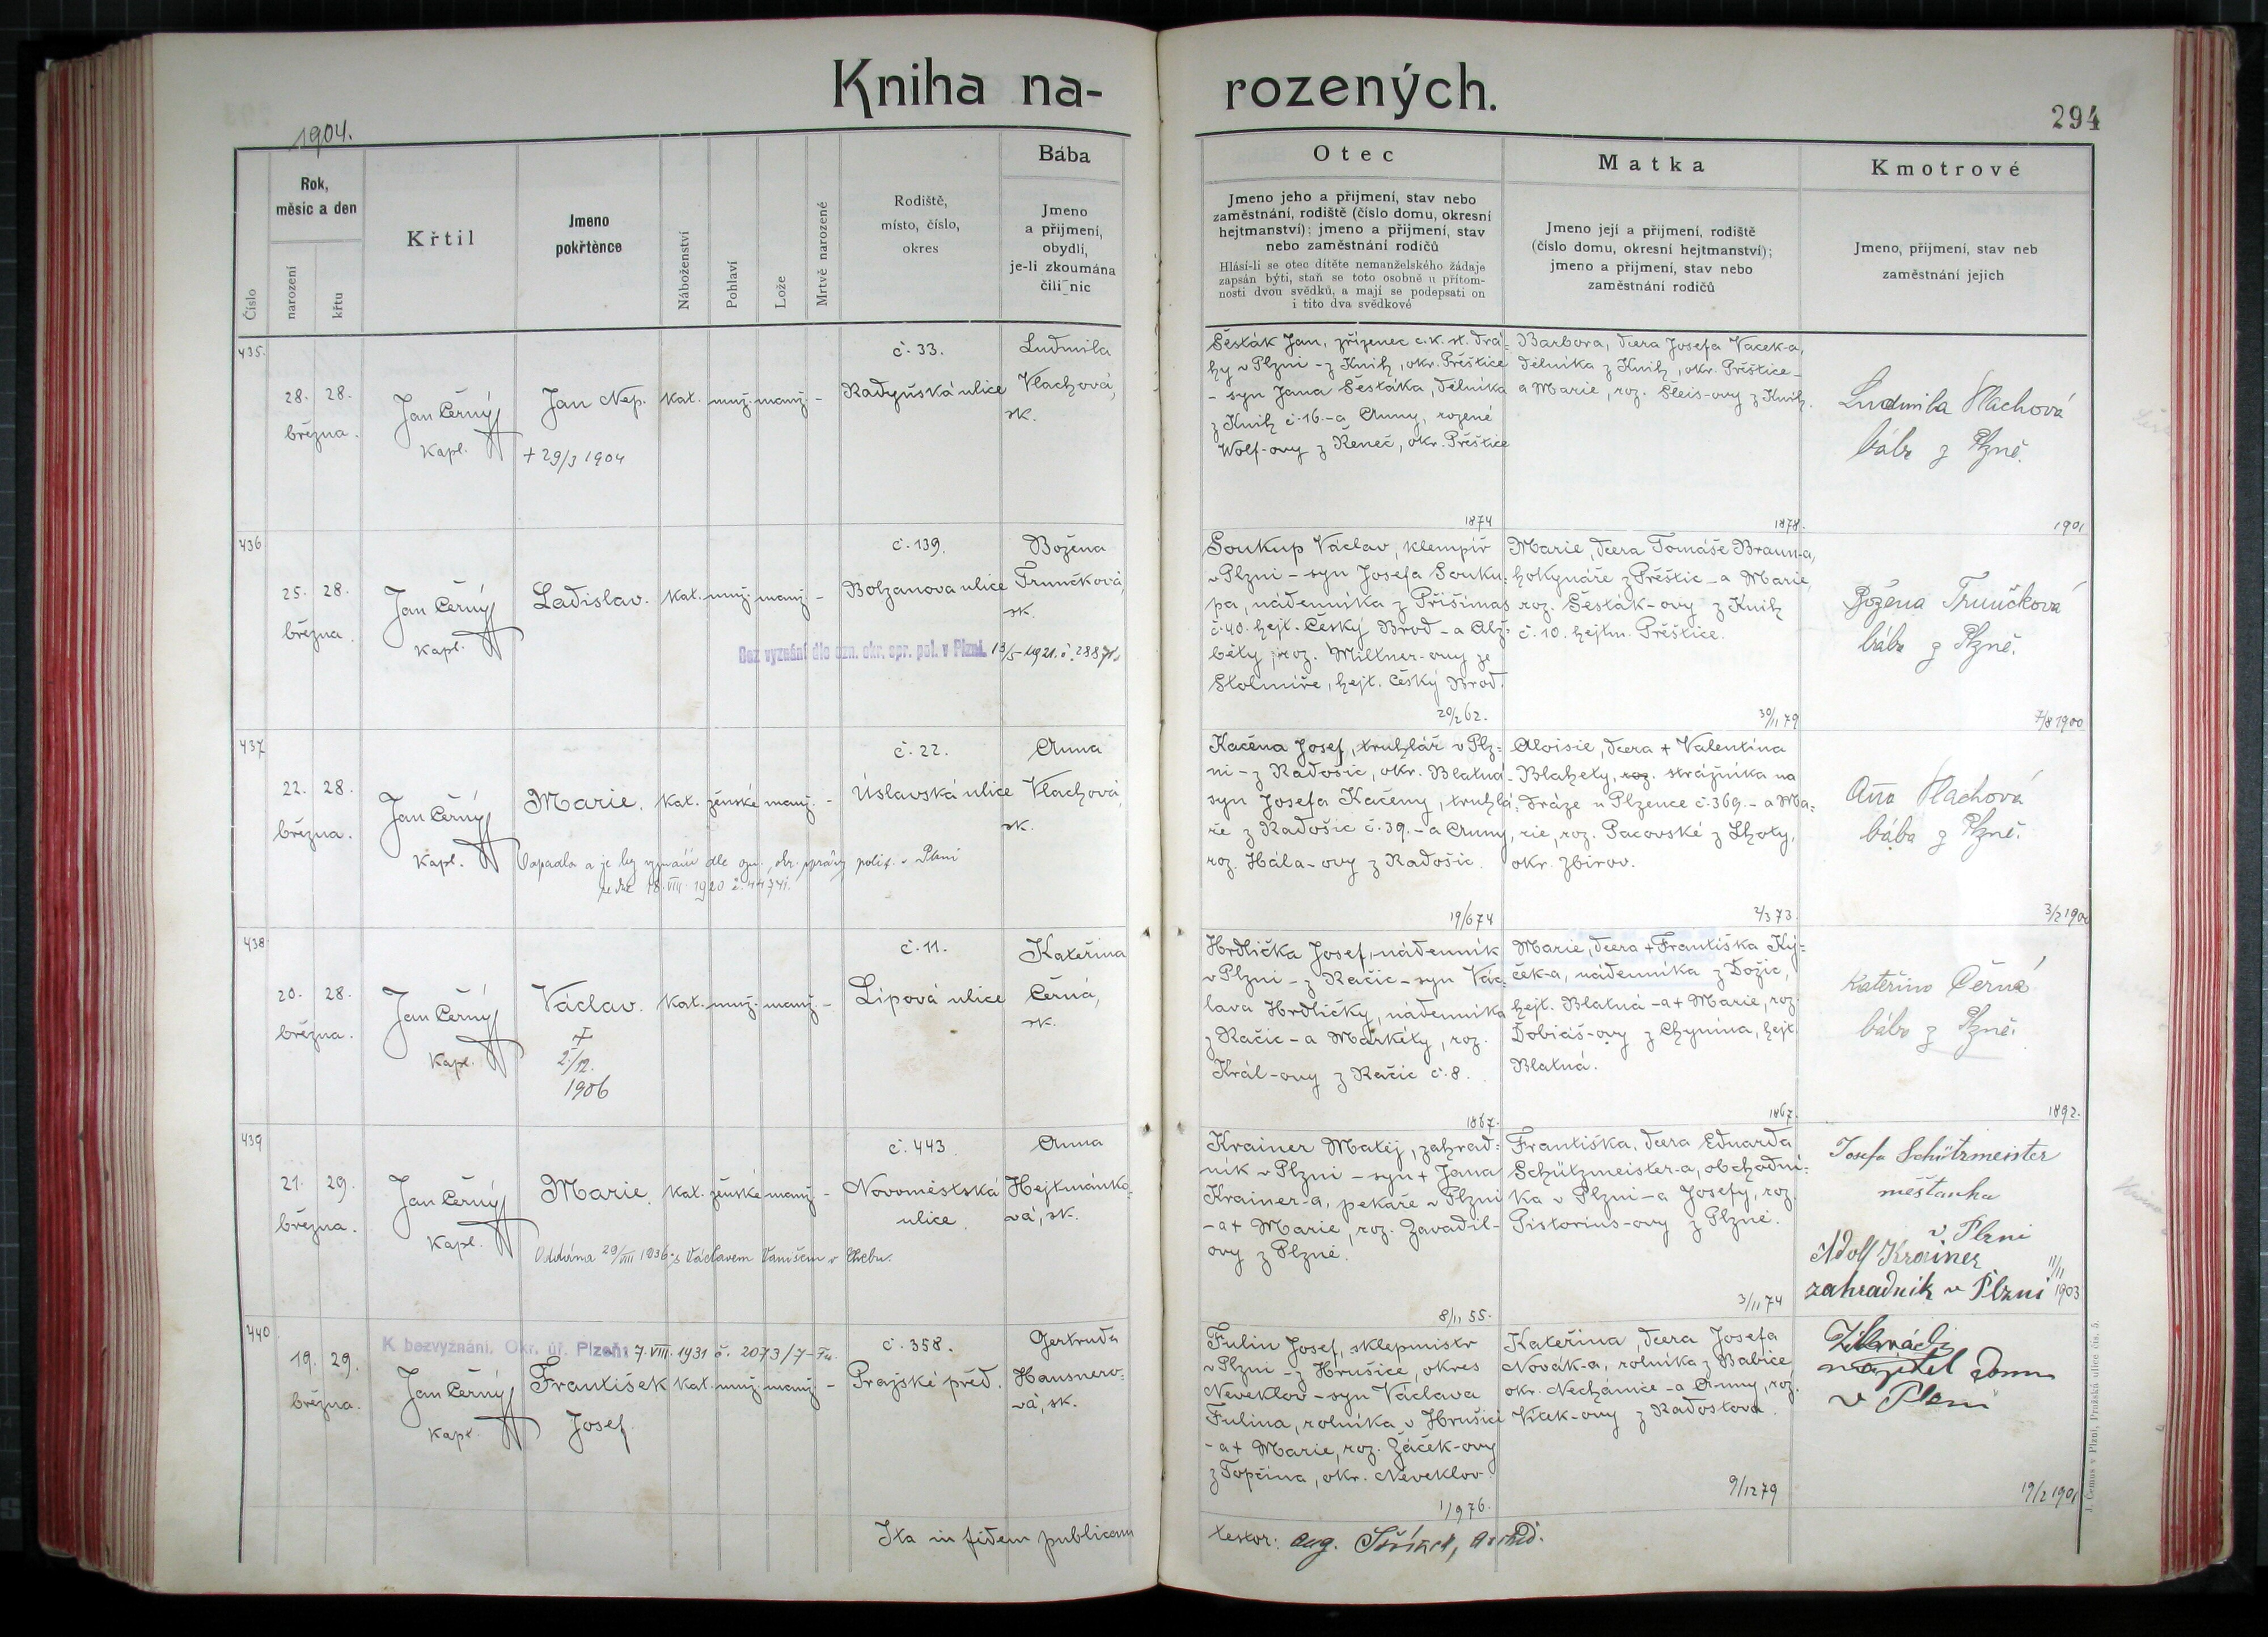 Kniha na-
rozených.
294
1904.
Číslo
Rok,
měsíc a den
narození
křtu
Křtil
Jmeno
pokřtěnce
Náboženství
Pohlaví
Lože
Mrtvě narozené
Rodiště,
místo, číslo,
okres
Bába
Jmeno
a přijmení,
obydlí,
je-li zkoumána
čili nic
Otec
Jmeno jeho a přijmení, stav nebo
zaměstnání, rodiště (číslo domu, okresní
hejtmanství); jmeno a přijmení, stav
nebo zaměstnání rodičů
Hlásí-li se otec dítěte nemanželského žádaje
zapsán býti, staň se toto osobně u přítom-
nosti dvou svědků, a mají se podepsati on
i tito dva svědkové
Matka
Jmeno její a přijmení, rodiště
(číslo domu, okresní hejtmanství);
jmeno a přijmení, stav nebo
zaměstnání rodičů
Kmotrové
Jmeno, přijmení, stav neb
zaměstnání jejich
435.
28. 28.
března.
Jan Černý
kapl.
Jan Nep.
+ 29/3 1904
kat. muž. manž. -
č. 33.
Radyňská ulice
Ludmila
Vlachová,
zk.
Šesták Jan, zřízenec c.k. st. drá-
hy v Plzni - z Knih, okr. Přeštice
- syn Jana Šestáka, dělníka
z Knih č. 16. - a Anny, rozené
Wolf-ovy z Řeneč, okr. Přeštice
1874
Barbora, dcera Josefa Vacek-a,
dělníka z Knih, okr. Přeštice -
a Marie, roz. Šleis-ovy z Knih.
1878.
Ludmila Vlachová
bába z Plzně.
1901
436
25. 28.
března.
Jan Černý
kapl.
Ladislav.
kat. muž. manž. -
č. 139.
Bolzanova ulice
Božena
Trunčková,
zk.
Bez vyznání dle ozn. okr. spr. pol. v Plzni. 13/5 1921. č. 2887
Soukup Václav, klempíř
v Plzni - syn Josefa Souku-
pa, nádenníka z Přišimas
č. 40. hejt. Český Brod - a Alž-
běty, roz. Miltner-ovy ze
Štolmíře, hejt. Český Brod.
20/2 62.
Marie, dcera Tomáše Braun-a,
hokynáře z Přeštic - a Marie,
roz. Šesták-ovy z Knih
č. 10. hejtm. Přeštice.
30/11 79
Božena Trunčková
bába z Plzně.
7/8 1900
437
22. 28.
března.
Jan Černý
kapl.
Marie.
kat. ženské manž. -
č. 22.
Úslavská ulice
Anna
Vlachová,
zk.
Vypadla a je bez vyznání dle ozn. okr. správy polit. v Plzni
ze dne 18. VIII. 1920 č. 44741.
Kačena Josef, truhlář v Plz-
ni - z Radošic, okr. Blatná -
syn Josefa Kačeny, truhlá-
ře z Radošic č. 39. - a Anny,
roz. Hála-ovy z Radošic.
19/6 74
Aloisie, dcera + Valentina
Blahety, roz. strážníka na
dráze u Plzence č. 369. - a Ma-
rie, roz. Pacovské z Lhoty,
okr. Zbirov.
2/3 73.
Anna Vlachová
bába z Plzně.
3/2 1900
438
20. 28.
března.
Jan Černý
kapl.
Václav.
+
2/12.
1906
kat. muž. manž. -
č. 11.
Lipová ulice
Kateřina
Černá,
zk.
Hrdlička Josef, nádenník
v Plzni - z Račic - syn Vác-
lava Hrdličky, nádenníka
z Račic - a Markéty, roz.
Král-ovy z Račic č. 8.
1867.
Marie, dcera + Františka Ký-
ček-a, nádenníka z Dožic,
hejt. Blatná - a + Marie, roz.
Dobiáš-ovy z Chynína, hejt.
Blatná.
1867.
Kateřina Černá
bába z Plzně.
1892.
439
21. 29.
března.
Jan Černý
kapl.
Marie.
kat. ženské manž. -
č. 443.
Novoměstská
ulice.
Anna
Hejtmánko-
vá, zk.
Oddána 29/VIII 1936 s Václavem Vaništem v Chebu.
Krainer Matěj, zahrad-
ník v Plzni - syn + Jana
Krainer-a, pekaře v Plzni
- a + Marie, roz. Zavadil-
ovy z Plzně.
8/11 55.
Františka, dcera Eduarda
Schützmeister-a, obchodní-
ka v Plzni - a Josefy, roz.
Pistorius-ovy z Plzně.
3/11 74
Josefa Schützmeister
měšťanka
v Plzni
Adolf Krainer
zahradník v Plzni
11/11
1903
440
19. 29.
března.
K bezvyznání. Okr. úř. Plzeň: 7. VIII. 1931 č. 2073/7-Fu.
Jan Černý
kapl.
František
Josef.
kat. muž. manž. -
č. 358.
Pražské před.
Gertruda
Hausnero-
vá, zk.
Fulín Josef, sklepmistr
v Plzni - z Hrušice, okres
Neveklov - syn Václava
Fulína, rolníka v Hrušici
- a + Marie, roz. Žáček-ovy
z Topčina, okr. Neveklov.
1/9 76.
Kateřina, dcera Josefa
Novák-a, rolníka z Babice,
okr. Nechánice - a Anny, roz.
Vítek-ovy z Radostova.
9/12 79
majitel domu
v Plzni
19/2 1901
Ita in fidem publicam
testor: Aug.
J. Černus v Plzni, Pražská ulice čís. 5.